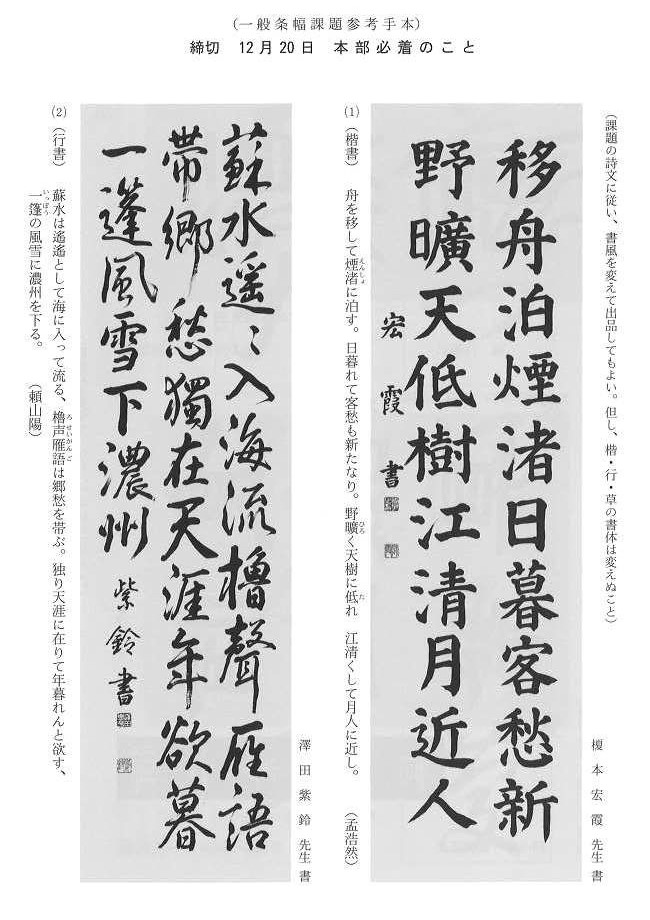 (一般条幅課題参考手本)
締切　12月20日　本部必着のこと
(課題の詩文に従い、書風を変えて出品してもよい。但し、楷・行・草の書体は変えぬこと)
榎本宏霞先生書
移舟泊煙渚日暮客愁新
野曠天低樹江清月近人
宏霞書
(1)（楷書）　舟を移して煙渚に泊す。日暮れて客愁も新たなり。野曠く天樹に低れ　江清くして月人に近し。　（孟浩然）
えんしょ
ひろ
た
澤田紫鈴先生書
蘇水遥〻入海流櫓聲雁語
帶郷愁獨在天涯年欲暮
一篷風雪下濃州
紫鈴書
(2)（行書）　蘇水は遙遙として海に入って流る、櫓声雁語は郷愁を帯ぶ。独り天涯に在りて年暮れんと欲す、
ろせいがんご
一篷の風雪に濃州を下る。　（頼山陽）
いっぽう